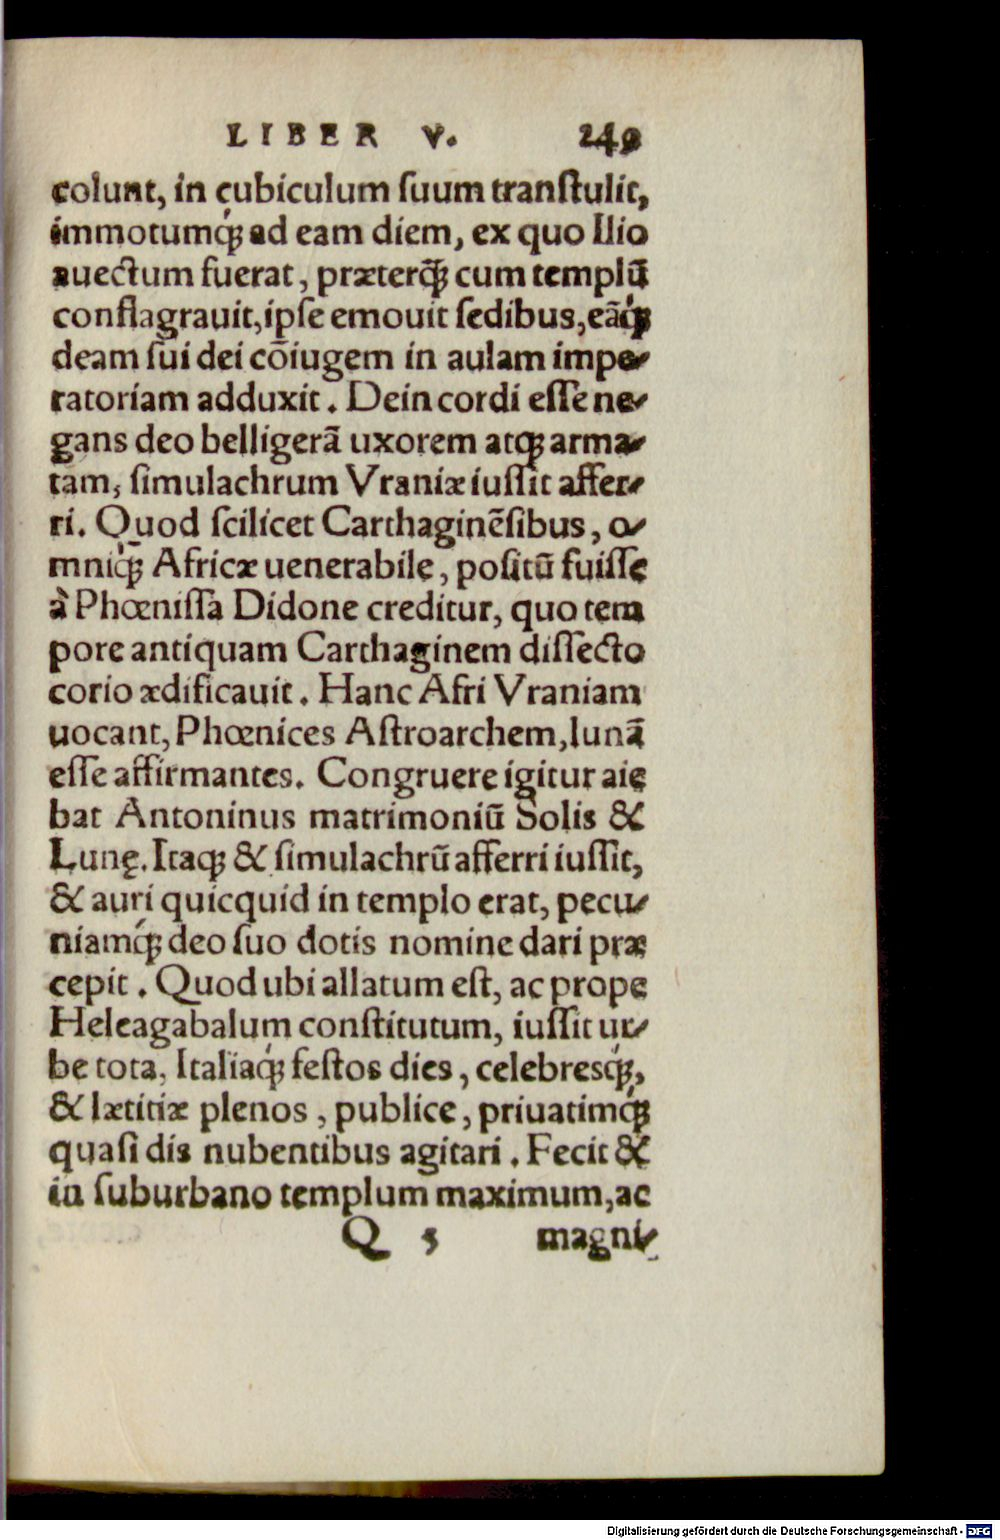 LIBER V. 249
colunt, in cubiculum suum transtulit,
immotumq́; ad eam diem, ex quo Ilio
auectum fuerat, præterq̃; cum templũ
conflagrauit, ipse emouit sedibus, eãq́;
deam sui dei cõiugem in aulam impe-
ratoriam adduxit. Dein cordi esse ne-
gans deo belligerã uxorem atq; arma-
tam, simulachrum Vraniæ iussit affer-
ri. Quod scilicet Carthaginẽsibus, o-
mniq́; Africæ uenerabile, positũ fuisse
à Phœnissa Didone creditur, quo tem
pore antiquam Carthaginem dissecto
corio ædificauit. Hanc Afri Vraniam
uocant, Phœnices Astroarchem, lunã
esse affirmantes. Congruere igitur aie
bat Antoninus matrimoniũ Solis &
Lunę. Itaq; & simulachrũ afferri iussit,
& auri quicquid in templo erat, pecu-
niamq́; deo suo dotis nomine dari præ
cepit. Quod ubi allatum est, ac prope
Heleagabalum constitutum, iussit ur-
be tota, Italiaq́; festos dies, celebresq́;,
& lætitiæ plenos, publice, priuatimq́;
quasi dis nubentibus agitari. Fecit &
in suburbano templum maximum, ac
Q 5 magni-
Digitalisierung gefördert durch die Deutsche Forschungsgemeinschaft - DFG